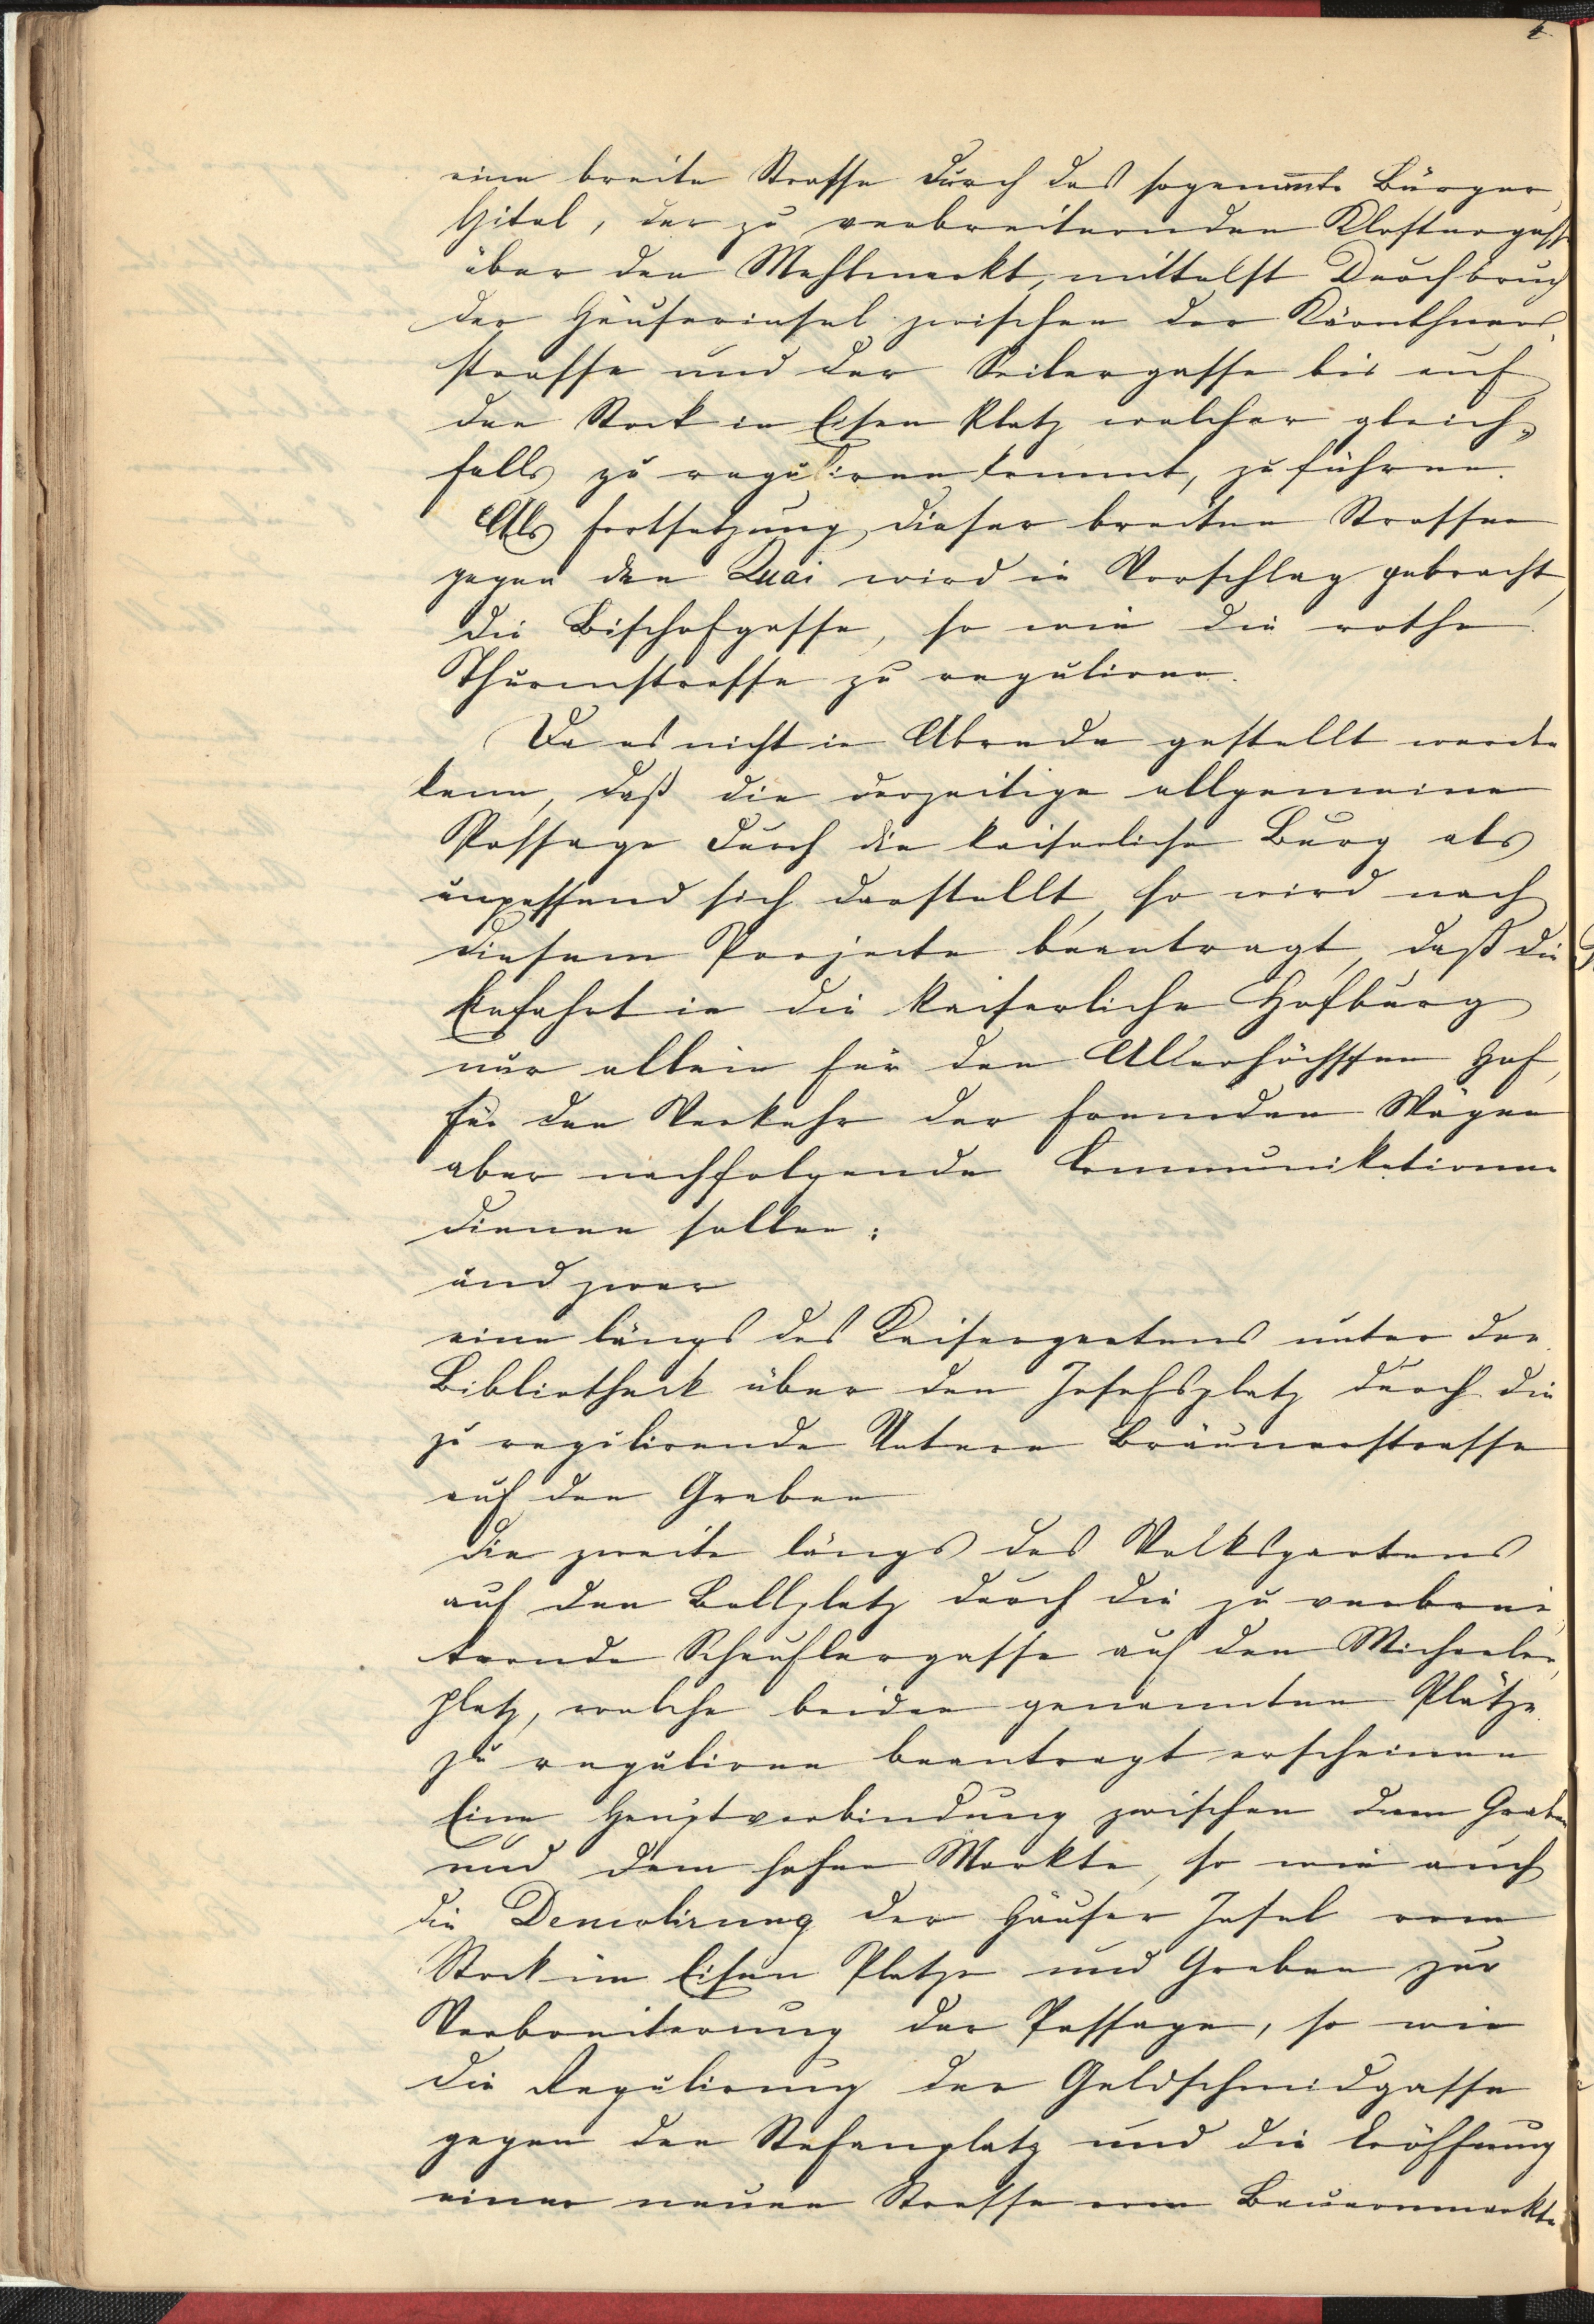 eine breite Strasse durch das sogenannte Bürger
spital, der zu verbreiternden Klostergasse
über den Mehlmarkt, mittelst Durchbruch
der Häuserinsel zwischen der Kärnthner
strasse und der Seilergasse bis auf
den Stock in Eisen Platz welcher gleich„
falls zu reguliren kommt, zu führen.
Als Fortsetzung dieser breiten Strassen
gegen den Quai wird in Vorschlag gebracht,
die Bischofgasse, so wie die rothe
Thurmstrasse zu reguliren.
Da es nicht in Abrede gestellt werden
kann, daß die derzeitige allgemeine
Passage durch die kaiserliche Burg als
unpassend sich darstellt, so wird nach
diesem Projecte beantragt, daß die
Einfahrt in die kaiserliche Hofburg
nur allein für den Allerhöchsten Hof,
für den Verkehr der fremden Wägen
aber nachfolgende Communikationen
dienen sollen:
und zwar
eine längs des Kaisergartens unter der
Bibliotheck über den Josefsplatz durch die
zu regulirende Untere Bräunerstrasse
auf den Graben
die zweite längs des Volksgartens
auf den Ballplatz durch die zu verbrei
ternde Schauflergasse auf den Michaeler
platz, welche beiden genannten Plätze
zu reguliren beantragt erscheinen
Eine Hauptverbindung zwischen dem Graben
und dem hohen Markte, so wie auch
die Demolirung der Häuser Insel vom
Stock im Eisen Platze und Graben zur
Verbreiterung der Passage, so wie
die Regulirung der Goldschmidgasse
gegen den Stefansplatz und die Eröffnung
einer neuen Strasse vom Bauernmarkte